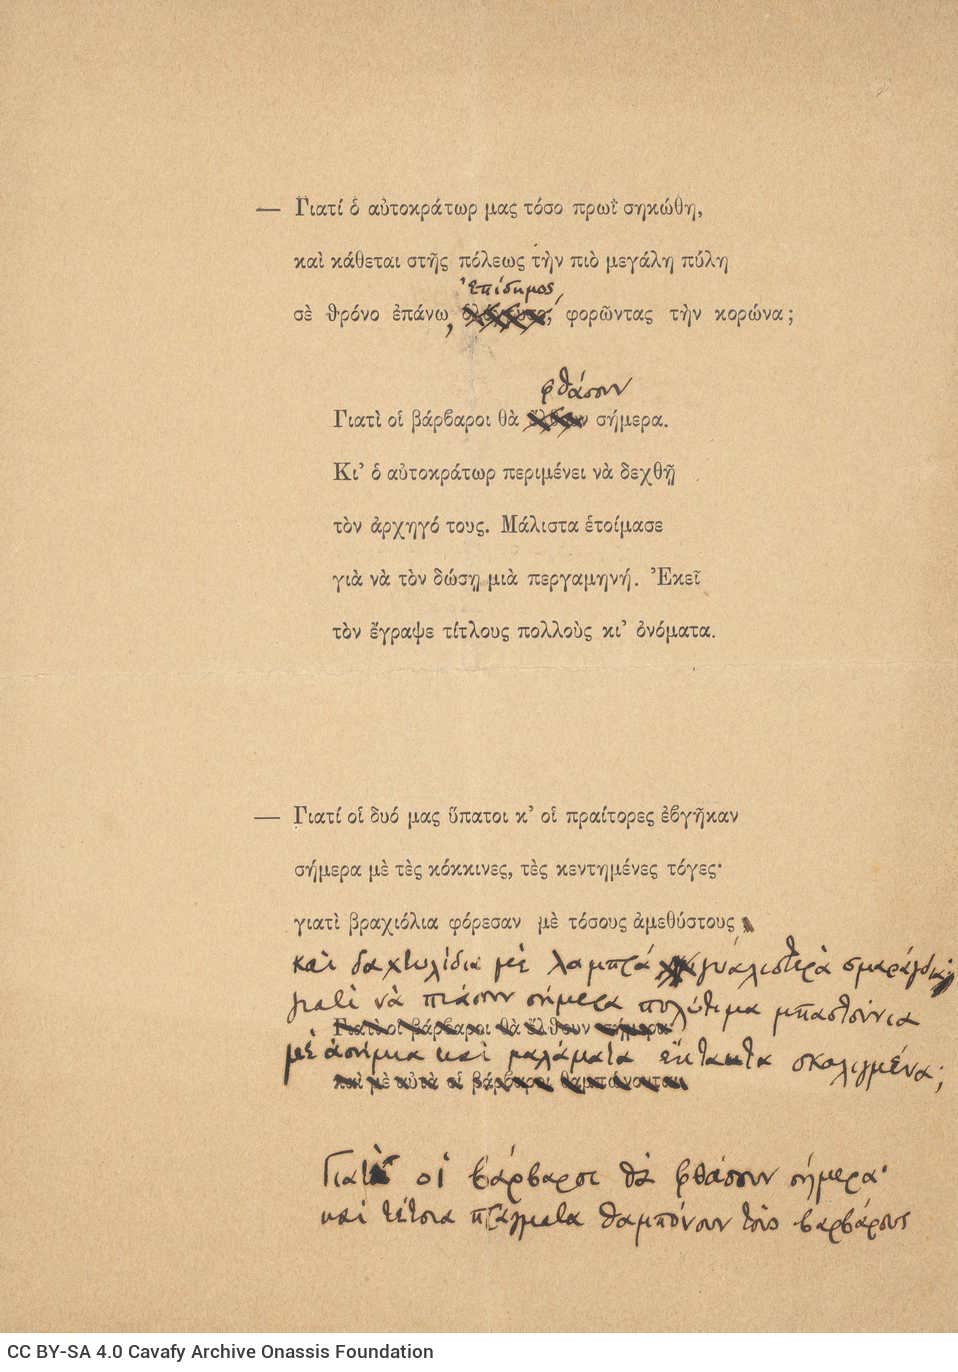 — Γιατί ὁ αὐτοκράτωρ μας τόσο πρωῒ σηκώθη,
καὶ κάθεται στῆς πόλεως τὴν πιὸ μεγάλη πύλη
ἐπίσημος,
σὲ θρόνο ἐπάνω, φορῶντας τὴν κορώνα;
φθάσουν
Γιατὶ οἱ βάρβαροι θὰ ἔλθουν σήμερα.
Κι’ ὁ αὐτοκράτωρ περιμένει νὰ δεχθῇ
τὸν ἀρχηγό τους. Μάλιστα ἑτοίμασε
γιὰ νὰ τὸν δώσῃ μιὰ περγαμηνή. Ἐκεῖ
τὸν ἔγραψε τίτλους πολλοὺς κι’ ὀνόματα.
— Γιατί οἱ δυό μας ὕπατοι κ’ οἱ πραίτορες ἐβγῆκαν
σήμερα μὲ τὲς κόκκινες, τὲς κεντημένες τόγες·
γιατὶ βραχιόλια φόρεσαν μὲ τόσους ἀμεθύστους
καὶ δαχτυλίδια μὲ λαμπρά γυαλιστερὰ σμαράγδια·
γιατὶ νὰ πιάσουν σήμερα πολύτιμα μπαστούνια
Γιατὶ οἱ βάρβαροι θὰ ἔλθουν σήμερα
μὲ ἀσήμια καὶ μαλάματα ἔκτακτα σκαλιγμένα;
καὶ μὲ αὐτὰ οἱ βάρβαροι θαμπώνονται.
Γιατὶ οἱ βάρβαροι θὰ φθάσουν σήμερα·
καὶ τέτοια πράγματα θαμπόνουν τοὺς βαρβάρους
CC BY-SA 4.0 Cavafy Archive Onassis Foundation